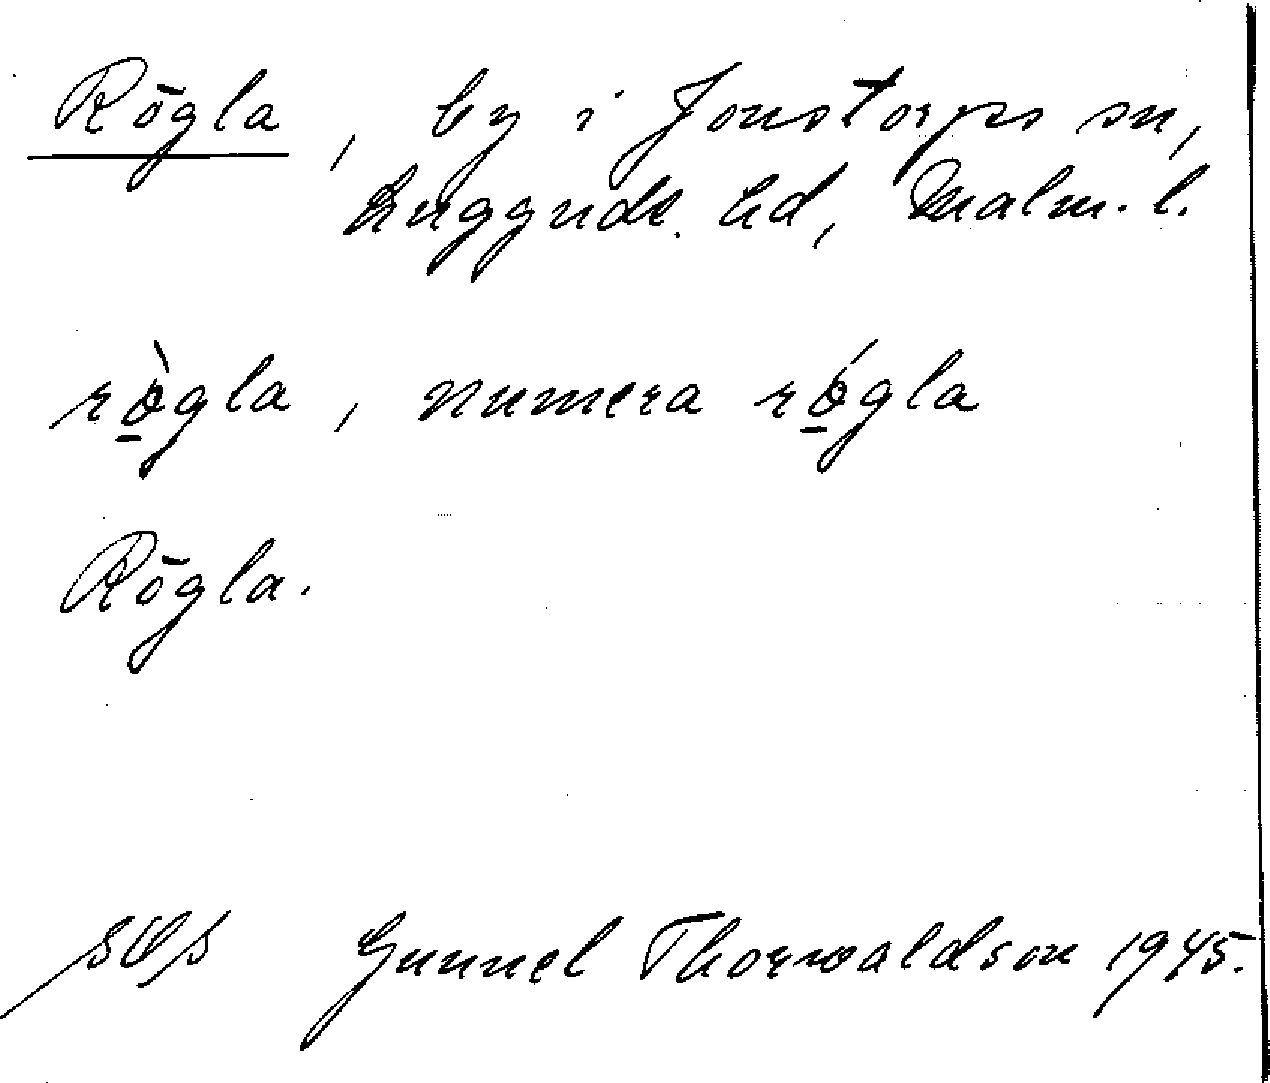 Rögla, by i Jonstorps sn,
Luggude hd, Malm. l.
rö̀gla, numera rö́gla
Rögla.
Gunnel Thorwaldson 1945.